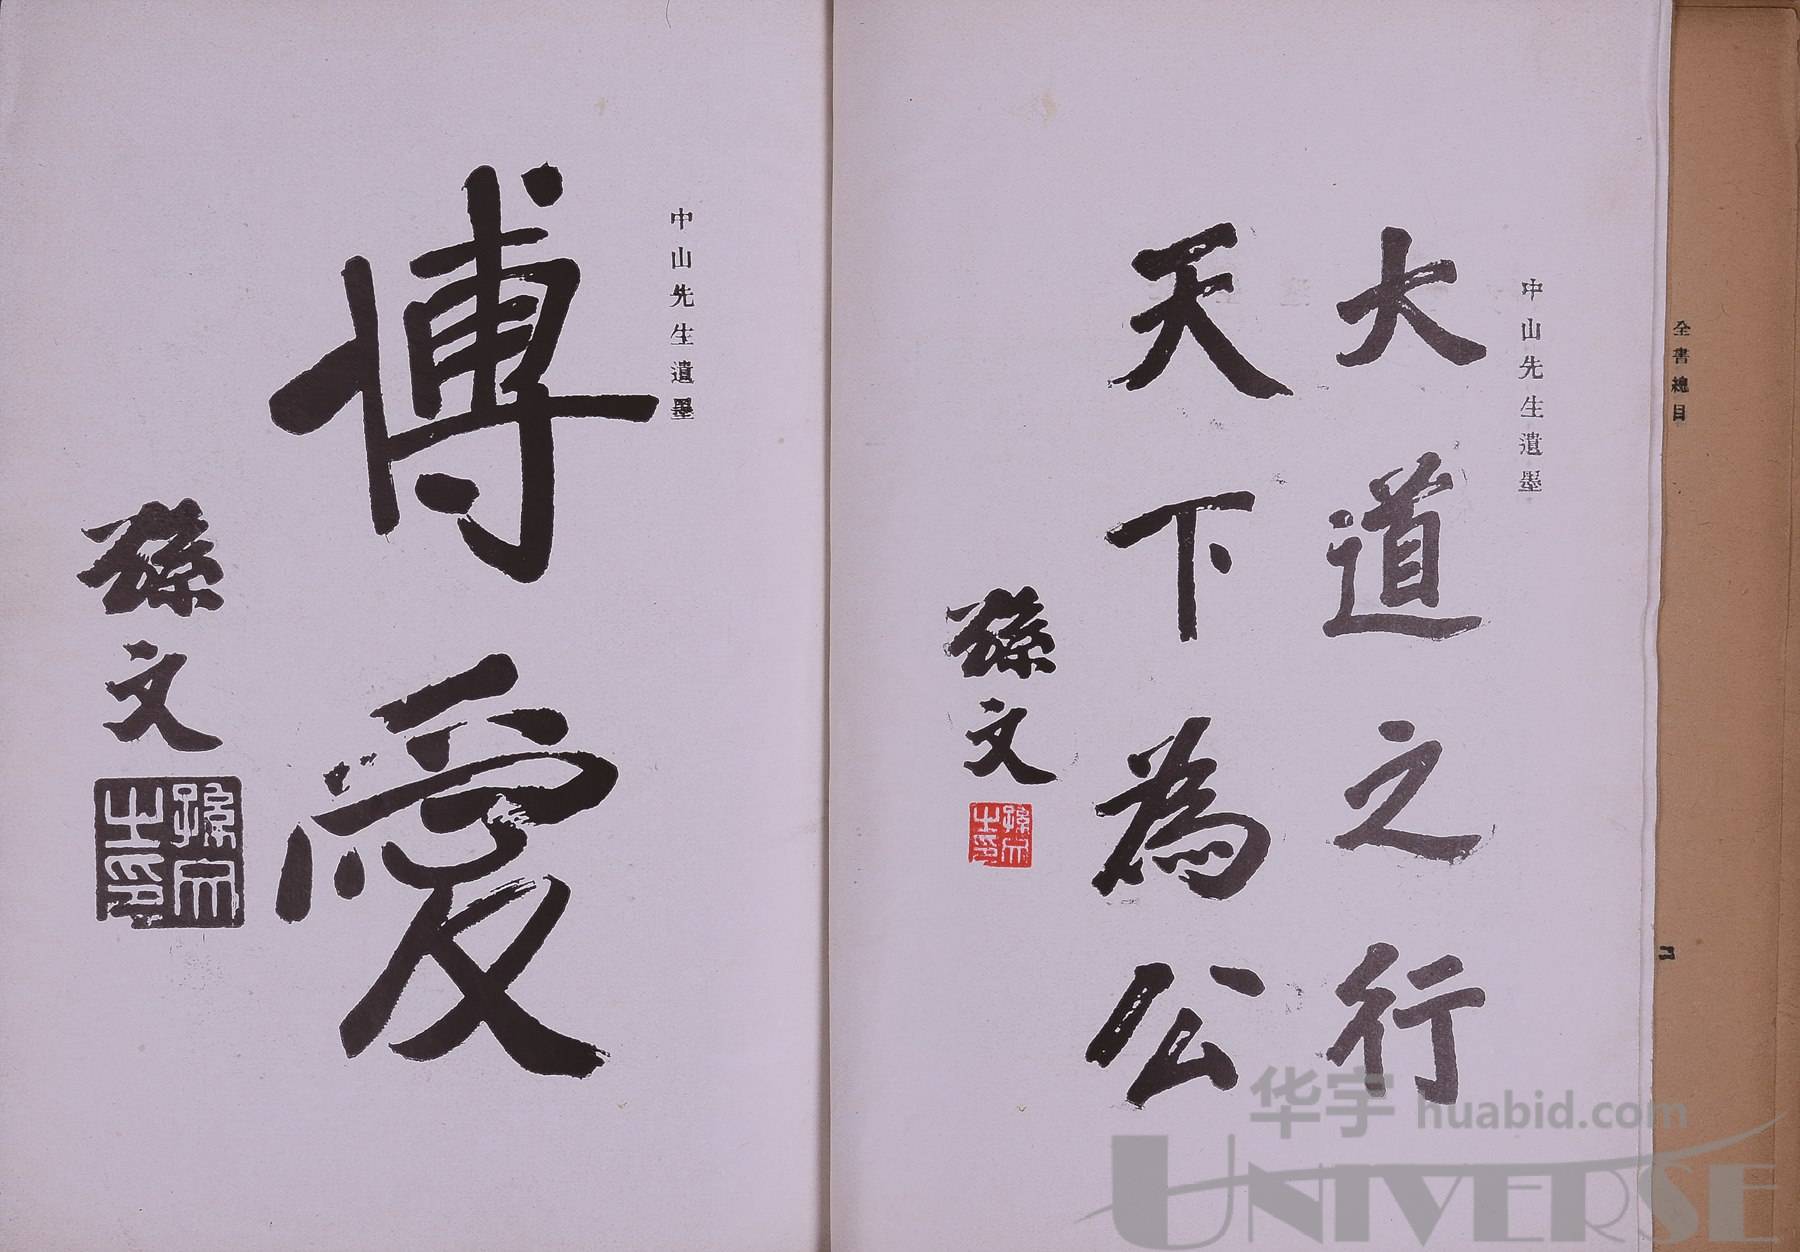 全書總目
二
中山先生遺墨
大道之行
天下為公
孫文
孫文之印
中山先生遺墨
博愛
孫文
孫文之印
华宇 huabid.com
UNIVERSE